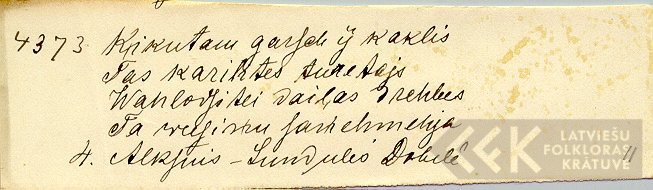 4373 Kikutam garsch ij kaklis
Tas kariktes turetajs
Wahlodsitei dailas drehbes
Ta rugimu sanehmehja
4. Alksnis-Sundulis Dobelē
LATVIEŠU
FOLKLORAS
KRĀTUVE